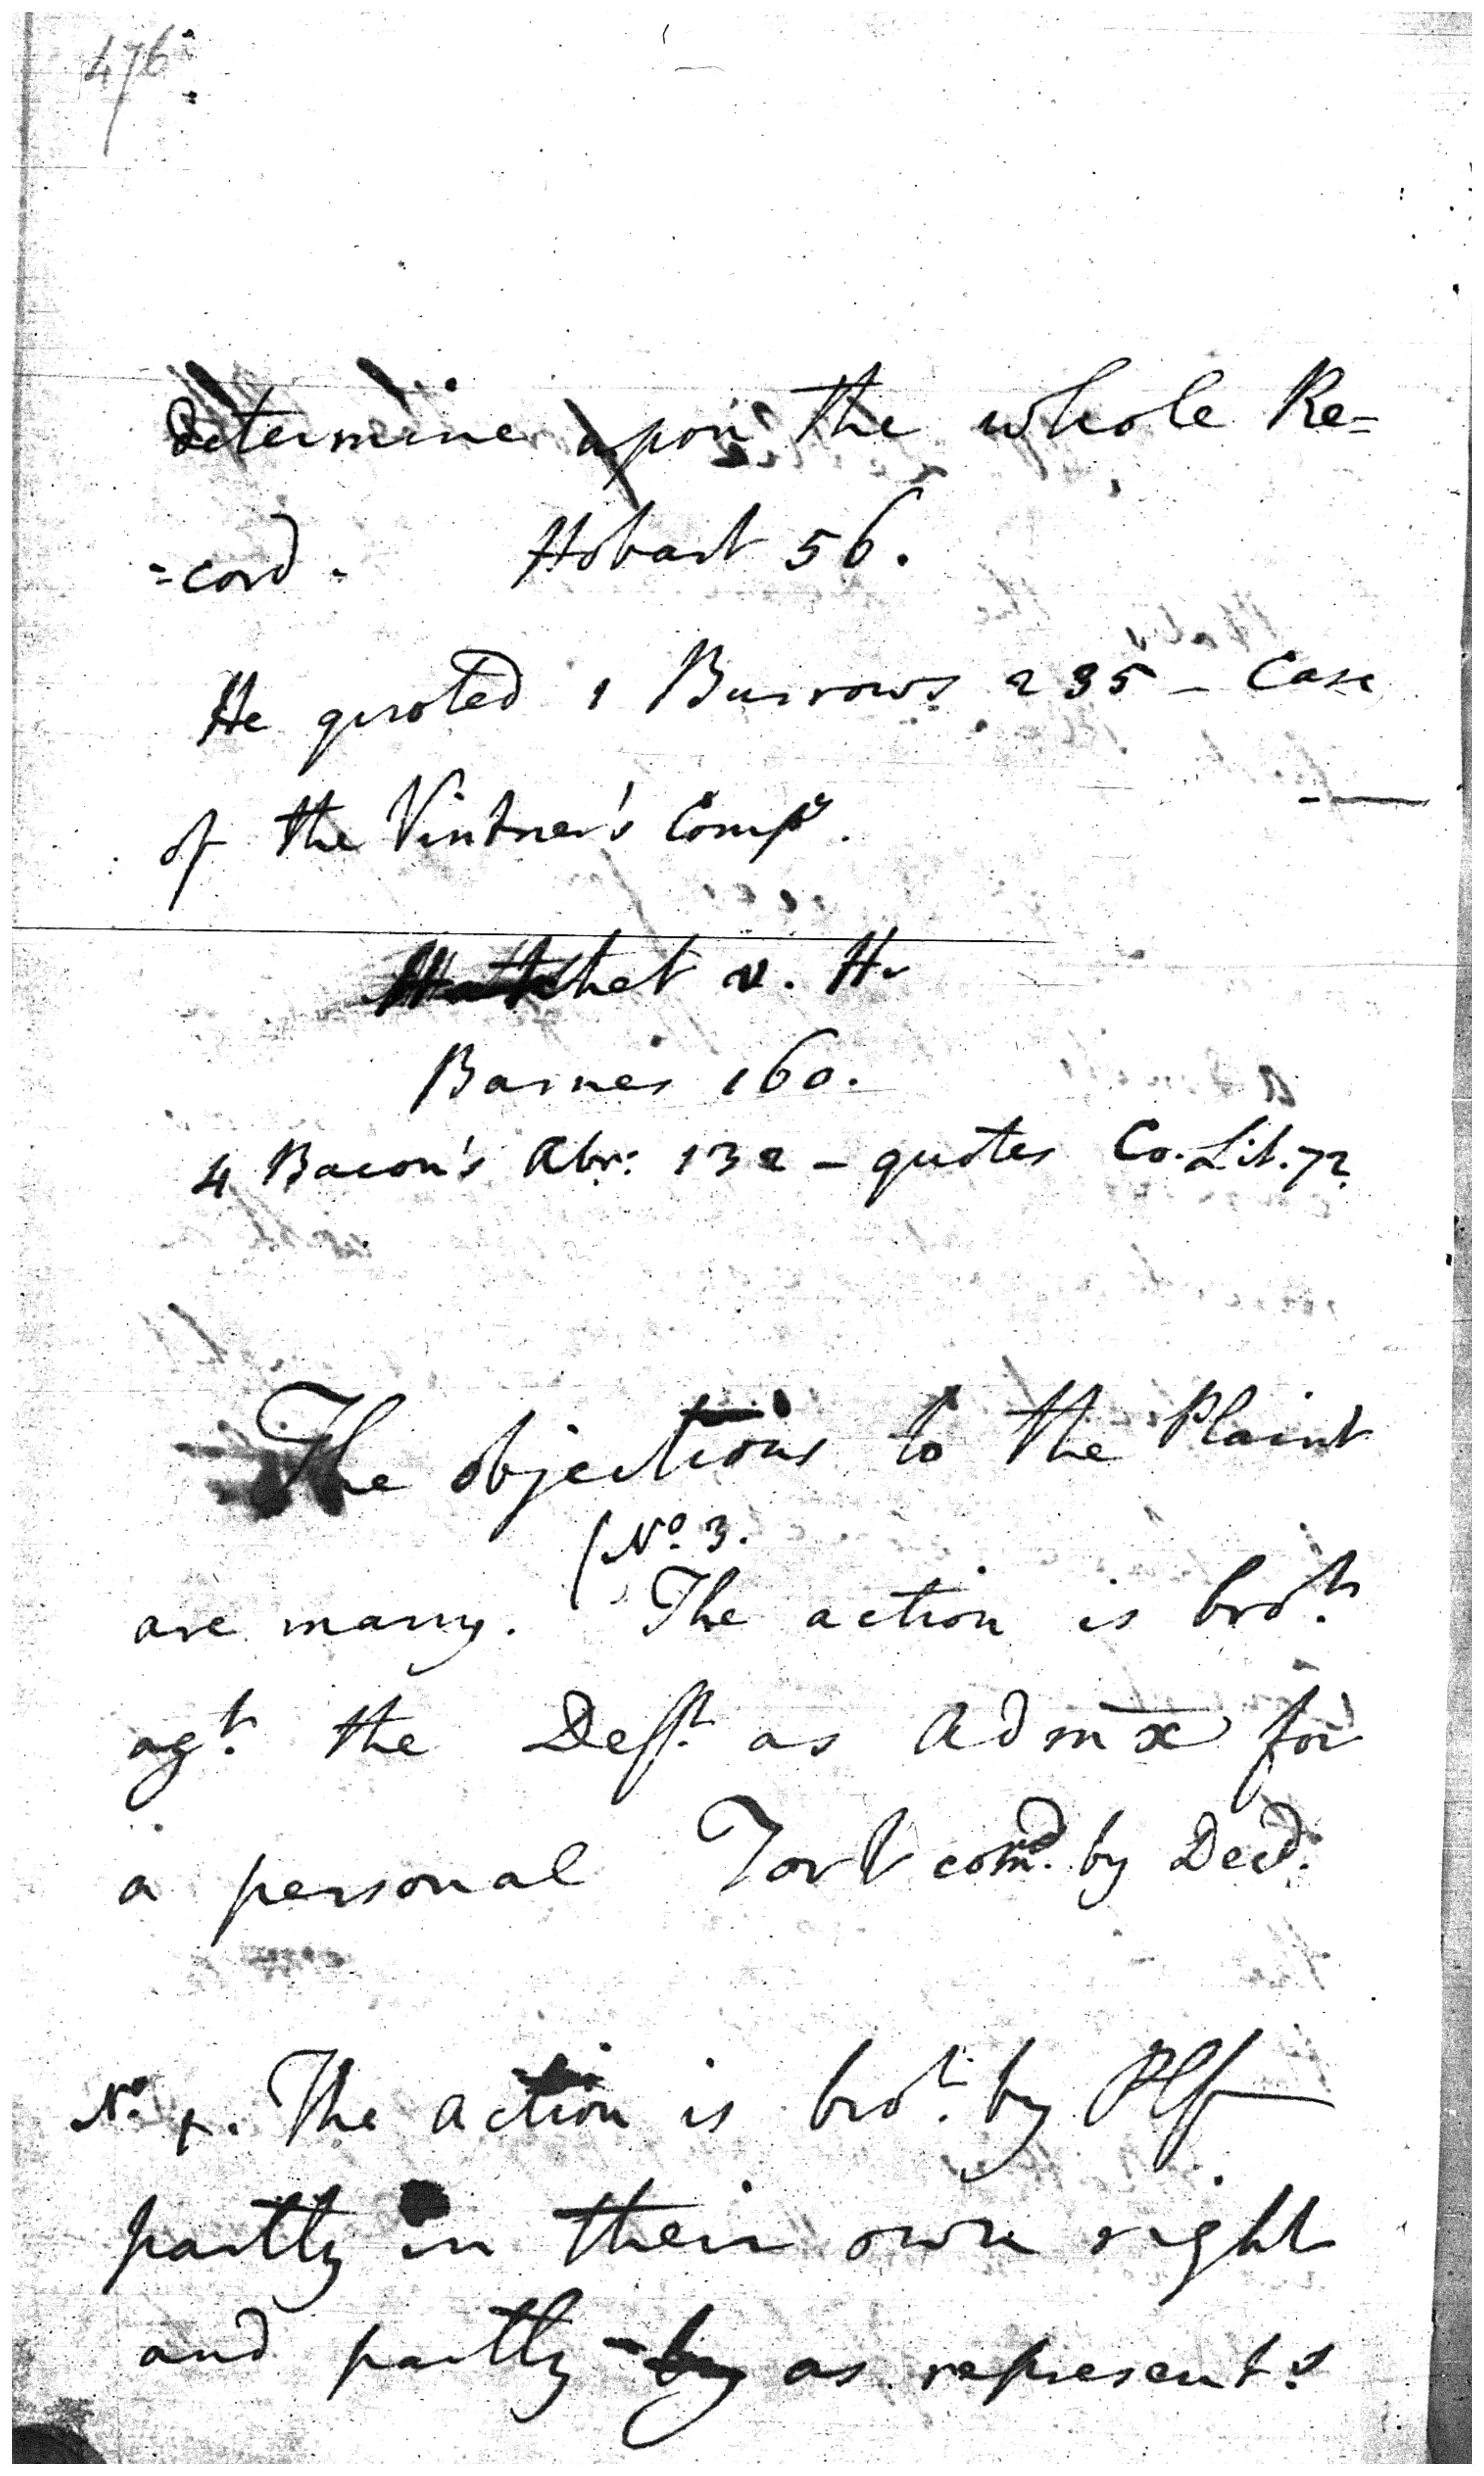 476
determine upon the whole Re=
=cord. Hobart 56.
He quoted 1 Burrows 235 - Case
of the Vintner's Compy.
v. H.
Barnes 160.
4 Bacon's Abr: 132 - quotes Co. Lit. 72
The objections to the Plaint
(No. 3.
are many. The action is brot.
agt. the Deft. as Admx for
a personal Tort comd. by Decd.
No. 4. The action is brot. by Plf
partly in their own right
and partly by as represents